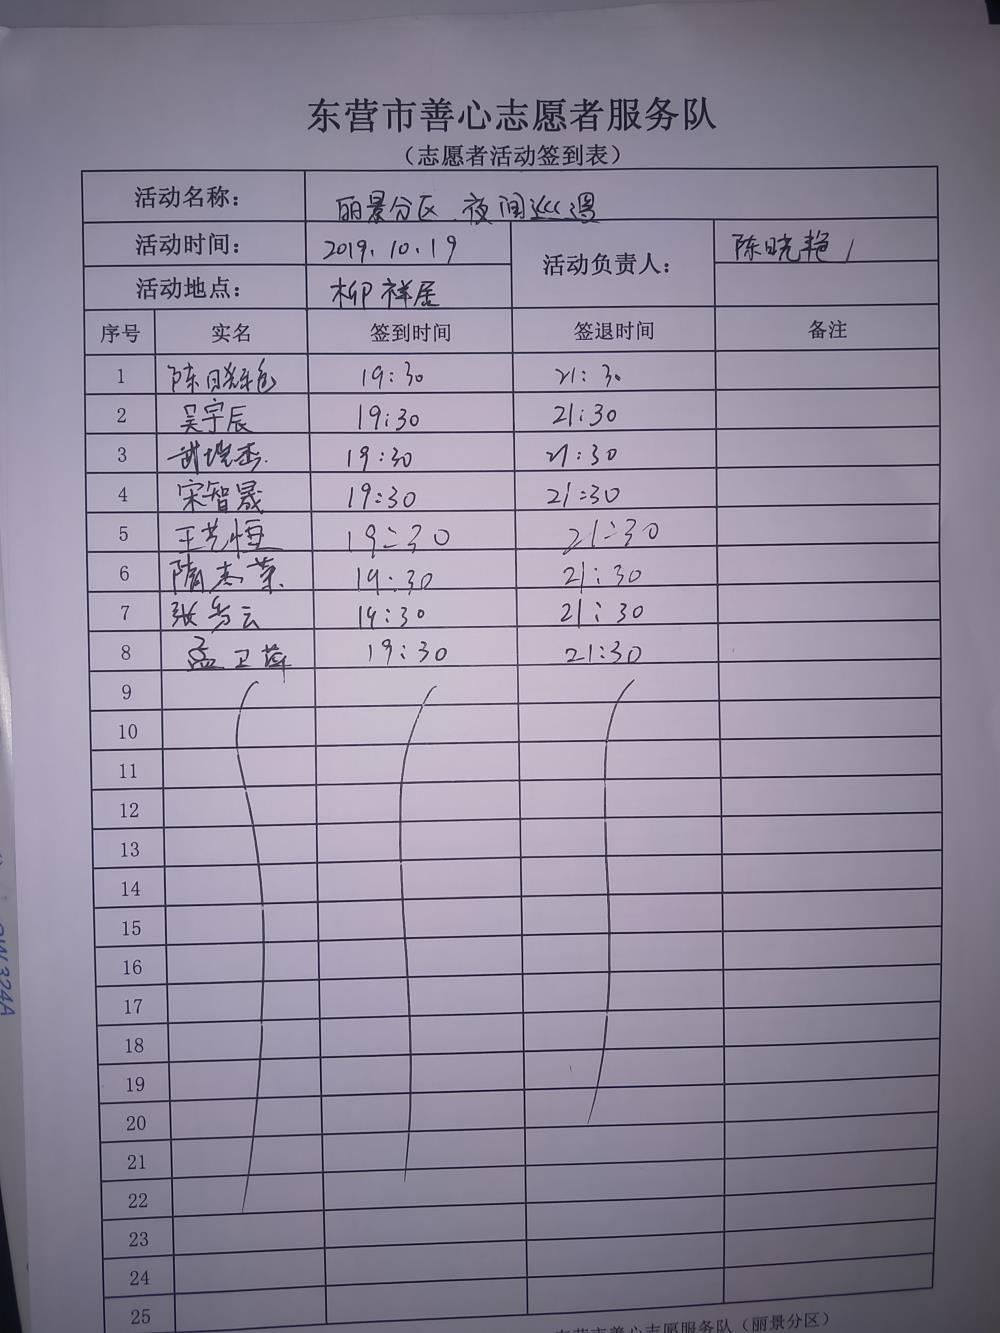 东营市善心志愿者服务队
（志愿者活动签到表）
活动名称： 丽景分区 夜间巡逻
活动时间： 2019.10.19 活动负责人： 陈晓艳
活动地点： 柳祥居
序号 实名 签到时间 签退时间 备注
1 陈晓艳 19:30 21:30
2 吴宇辰 19:30 21:30
3 19:30 21:30
4 宋智晟 19:30 21:30
5 王艺恒 19:30 21:30
6 隋 19:30 21:30
7 张秀云 19:30 21:30
8 孟卫萍 19:30 21:30
9
10
11
12
13
14
15
16
17
18
19
20
21
22
23
24
25
东营市善心志愿服务队（丽景分区）